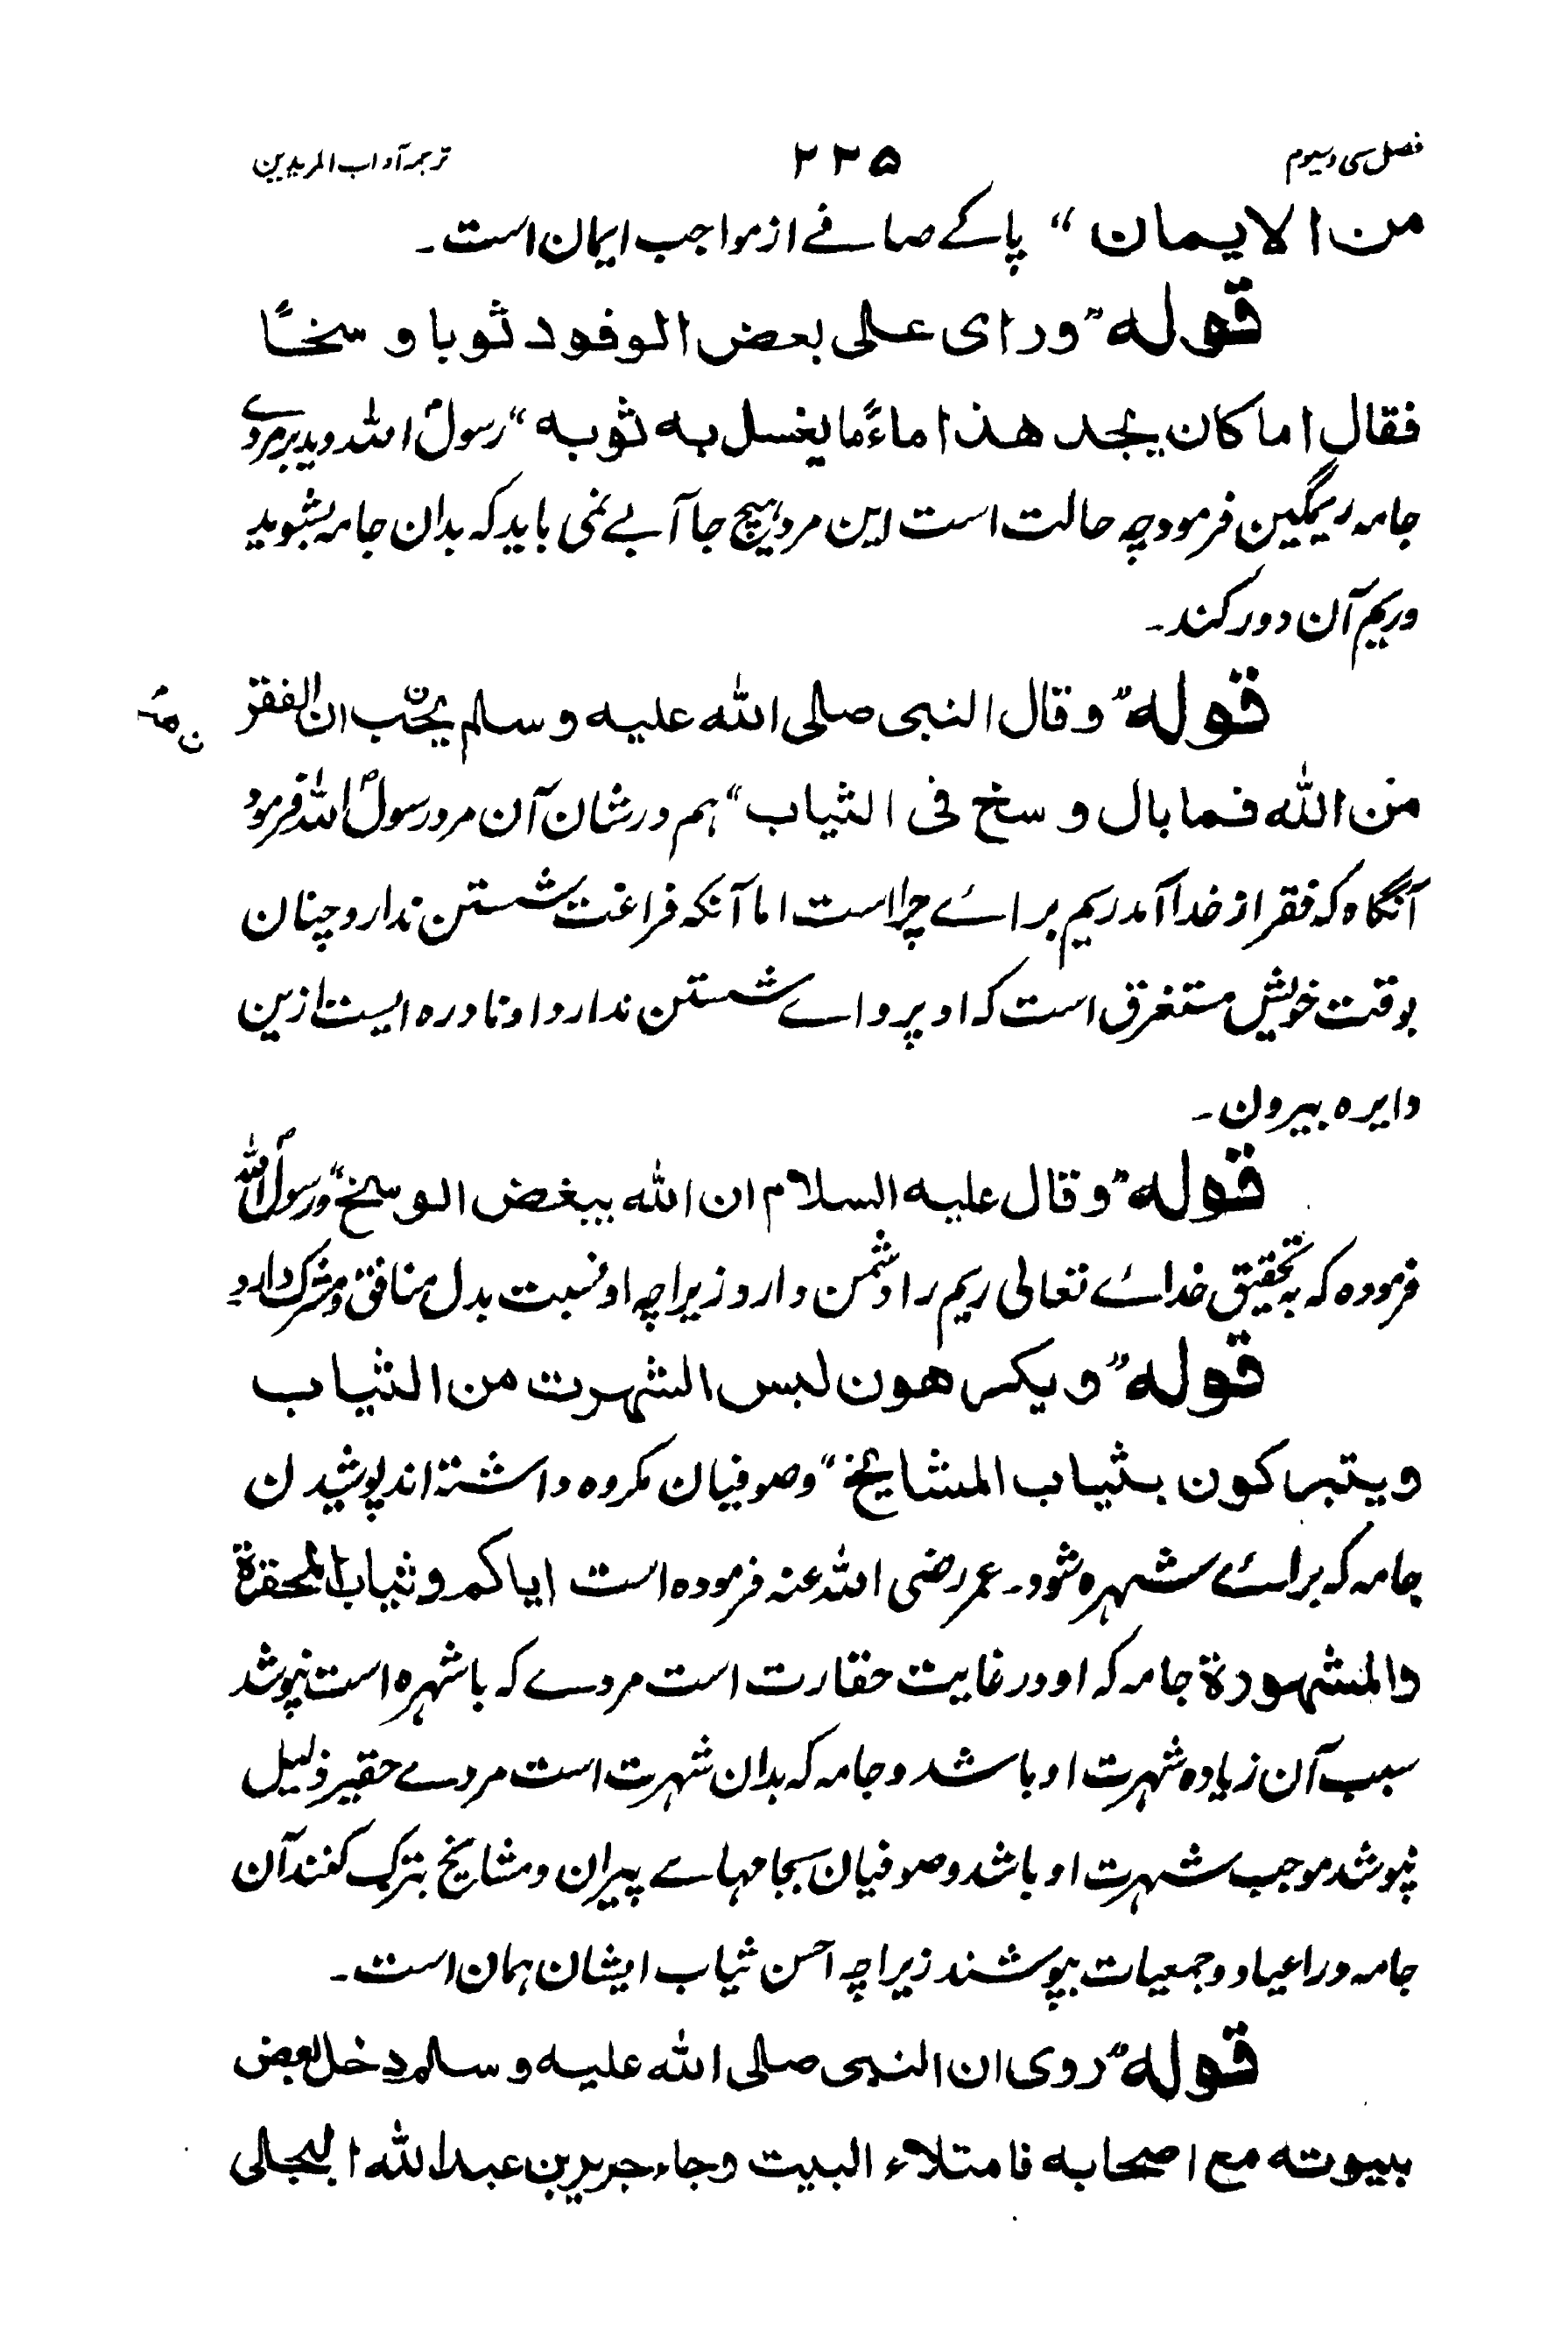 فصل سی و سیوم ۲۲۵ ترجمہ آداب المریدین
من الایمان“ پاکے صافے از مواجب ایمان است۔
قوله ”ورای علی بعض الوفود ثوبا وسخًا
فقال اما کان یجد هذا ماءً ما یغسل به ثوبه“ رسولؐ اللہ دید بر مردے
جامہ ریمگین فرمود چہ حالت است این مرد ہیچ جا آبے نمی یابد کہ بدان جامہ بشوید
و ریم آن دور کند۔
قوله ”وقال النبی صلی الله علیه وسلم یحتب ان الفقر
من الله فما بال وسخ فی الثیاب“ ہم در شان آن مرد رسولؐ اللہ فرمود
آنگاہ کہ فقر از خدا آمد ریم براے چراست اما آنکہ فراغت شستن ندارد چنان
بوقت خویش مستغرق است کہ او پرواے شستن ندارد او نادرہ ایست ازین
دایرہ بیرون۔
قوله ”وقال علیه السلام ان الله یبغض الوسخ“ و رسولؐ اللہ
فرمودہ کہ بہ تحقیق خداے تعالی ریم را دشمن دارد زیراچہ او نسبت بدل منافق و مشرک دارد
قوله ”ویکرهون لبس الشهرت من الثیاب
ویتبرکون بثیاب المشایخ“ و صوفیان مکروہ داشتہ اند پوشیدن
جامہ کہ براے شہرہ شود۔ عمر رضی اللہ عنہ فرمودہ است ایاکم وثیاب المحقرة
والمشهورة جامہ کہ او در غایت حقارت است مردے کہ با شہرہ است بپوشد
سبب آن زیادہ شہرت او باشد و جامہ کہ بدان شہرت است مردے حقیر ذلیل
بپوشد موجب شہرت او باشد و صوفیان بجامہاے پیران و مشایخ تبرک کنند آن
جامہ در اعیاد و جمعیات بپوشند زیراچہ احسن ثیاب ایشان ہمان است۔
قوله ”روی ان النبی صلی الله علیه وسلم دخل بعض
بیوته مع اصحابه فامتلاء البیت وجاء جریر بن عبدالله البجلی